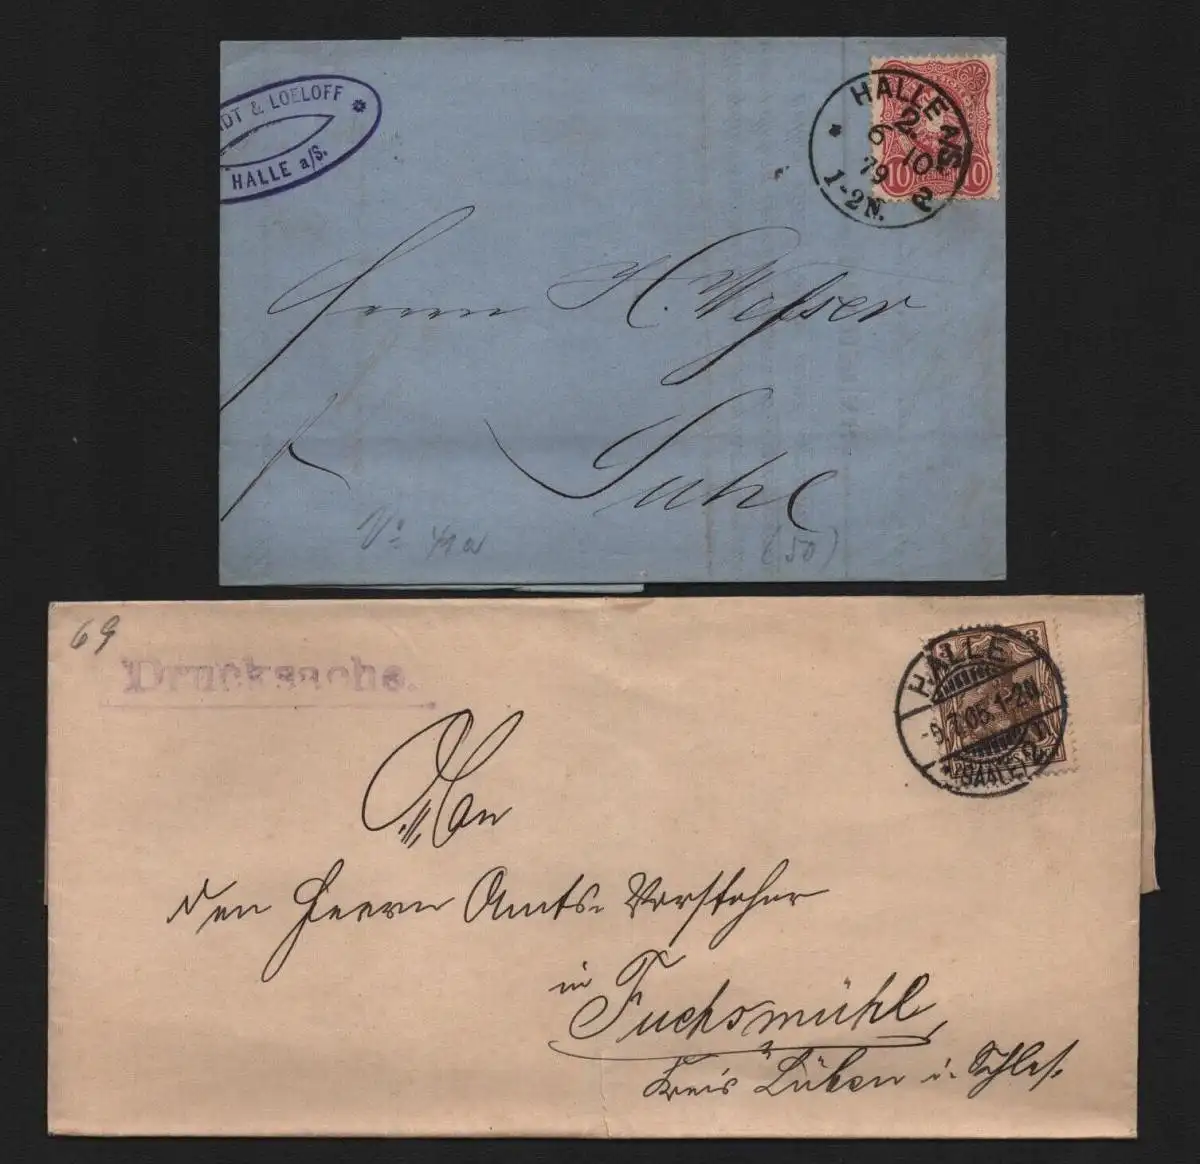 DT & LOELOFF
HALLE a/S.
HALLE a/S
2
6 10
79
1-2N.
10 PFENNIG 10
Herrn H.
Suhl
(50)
69
Drucksache.
3
HALLE
-9.7.05.1-2N.
(SAALE) 2
An
den Herrn Amts-Vorsteher
in
Fuchsmühl
Kreis Lüben i. Schles.